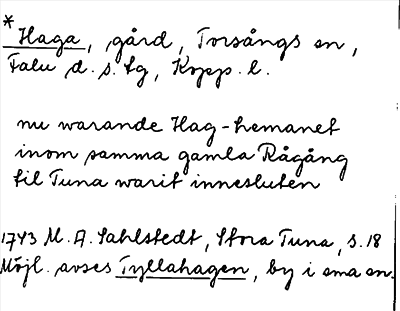 * Haga, gård, Torsångs sn,
Falu d. s. fg, Kopp. l.
nu warande Hag-hemanet
inom samma gamla Rågång
til Tuna warit innesluten
1743 M. A. Sahlstedt, Stora Tuna, s. 18
Möjl. avses Tyllahagen, by i sma sn.